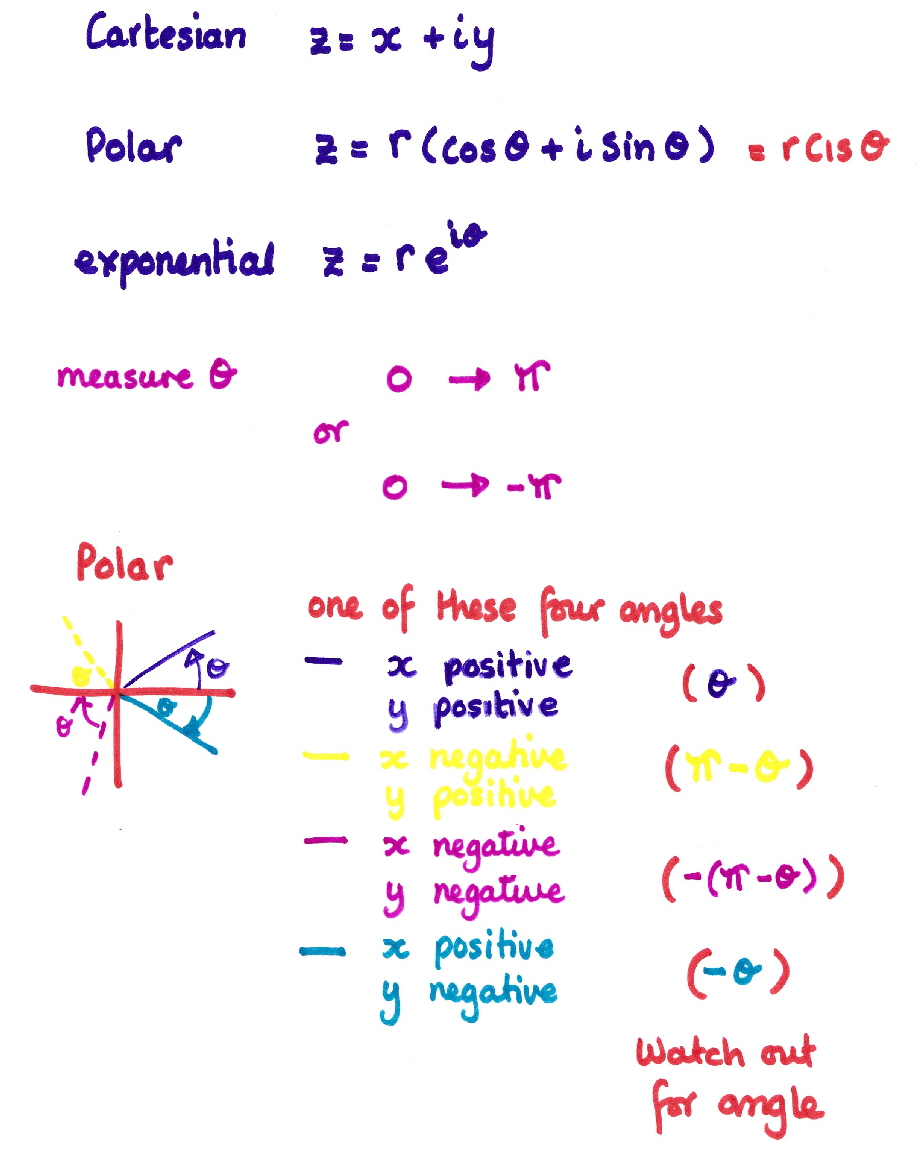 Cartesian z = x + iy
Polar z = r(cos θ + i sin θ) = r cis θ
exponential z = r e^{iθ}
measure θ 0 → π
or
0 → -π
Polar
one of these four angles
θ
θ
θ
θ
— x positive
y positive (θ)
— x negative
y positive (π - θ)
— x negative
y negative (-(π - θ))
— x positive
y negative (-θ)
Watch out
for angle